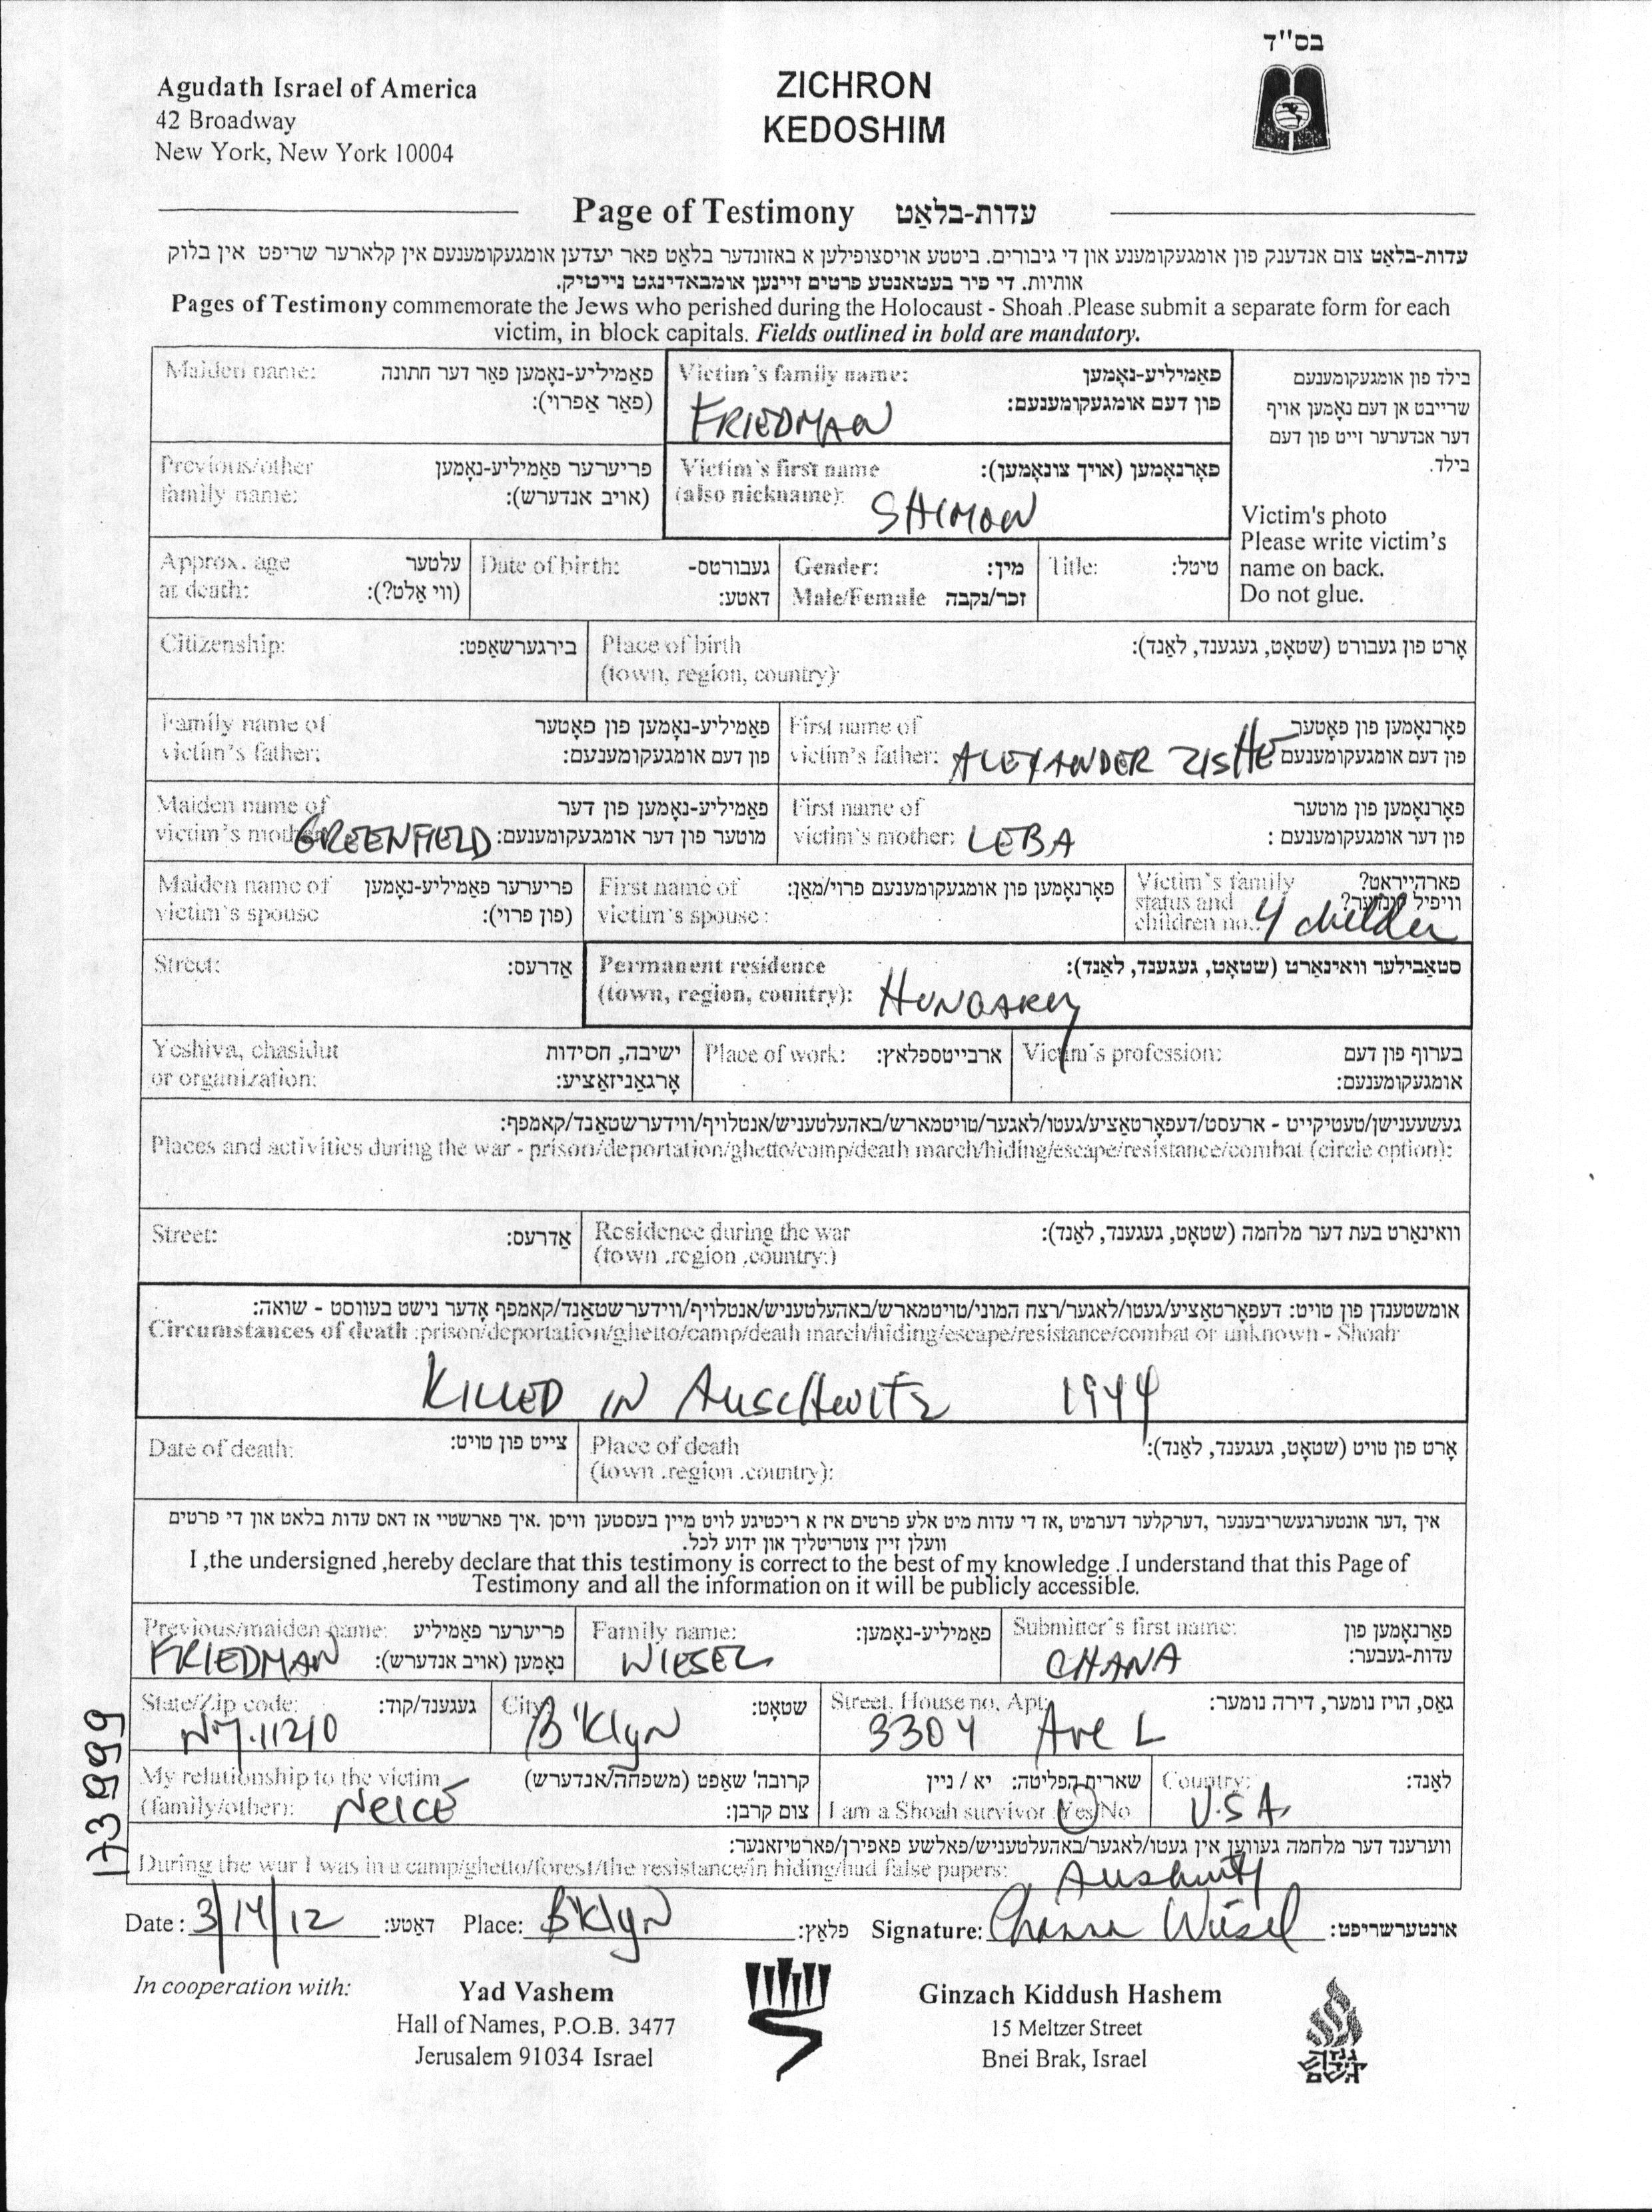 בס"ד
Agudath Israel of America
42 Broadway
New York, New York 10004
ZICHRON
KEDOSHIM
Page of Testimony עדות-בלאַט
עדות-בלאַט צום אנדענק פון אומגעקומענע און די גיבורים. ביטטע אויסצופילען א באזונדער בלאט פאר יעדען אומגעקומענעם אין קלארער שריפט אין בלוק
אותיות. די פיר בעטאנטע פרטים זיינען אומבאדינגט נייטיק.
Pages of Testimony commemorate the Jews who perished during the Holocaust - Shoah .Please submit a separate form for each
victim, in block capitals. Fields outlined in bold are mandatory.
Maiden name: פאַמיליע-נאָמען פאַר דער חתונה
(פאַר אַפרוי):
Victim's family name: פאַמיליע-נאָמען
פון דעם אומגעקומענעם:
FRIEDMAN
בילד פון אומגעקומענעם
שרייבט אן דעם נאָמען אויף
דער אנדערער זייט פון דעם
בילד.
Previous/other פריערער פאַמיליע-נאָמען
family name: (אויב אנדערש):
Victim's first name פאָרנאָמען (אויך צונאָמען):
(also nickname):
SHIMON
Victim's photo
Please write victim's
name on back.
Do not glue.
Approx. age עלטער
at death: (ווי אַלט?):
Date of birth: געבורטס-
דאטע:
Gender: מין:
Male/Female זכר/נקבה
Title: טיטל:
Citizenship: בירגערשאַפט:
Place of birth אָרט פון געבורט (שטאָט, געגענד, לאַנד):
(town, region, country):
Family name of פאַמיליע-נאָמען פון פאָטער
victim's father: פון דעם אומגעקומענעם:
First name of פאָרנאָמען פון פאָטער
victim's father: ALEXANDER ZISHE פון דעם אומגעקומענעם
Maiden name of פאַמיליע-נאָמען פון דער
victim's mother GREENFIELD מוטער פון דער אומגעקומענעם:
First name of פאָרנאָמען פון מוטער
victim's mother: LEBA פון דער אומגעקומענעם :
Maiden name of פריערער פאַמיליע-נאָמען
victim's spouse (פון פרוי):
First name of פאָרנאָמען פון אומגעקומענעם פרוי/מאַן:
victim's spouse :
Victim's family פארהייראט?
status and וויפיל
children no.: 4 childen
Street: אַדרעס:
Permanent residence סטאַבילער וואוינארט (שטאָט, געגענד, לאַנד):
(town, region, country): HUNGARY
Yeshiva, chasidut ישיבה, חסידות
or organization: אָרגאַניזאַציע:
Place of work: ארבייטספלאץ:
Victim's profession: בערוף פון דעם
אומגעקומענעם:
געשעענישן/טעטיקייט - ארעסט/דעפּאָרטאַציע/געטו/לאגער/טויטמארש/באהעלטעניש/אנטלויף/ווידערשטאנד/קאמפף:
Places and activities during the war - prison/deportation/ghetto/camp/death march/hiding/escape/resistance/combat (circle option):
Street: אַדרעס:
Residence during the war וואוינאָרט בעת דער מלחמה (שטאָט, געגענד, לאַנד):
(town .region .country:)
אומשטענדן פון טויט: דעפּאָרטאַציע/געטו/לאגער/רצח המוני/טויטמארש/באהעלטעניש/אנטלויף/ווידערשטאַנד/קאמפף אָדער נישט בעוואוסט - שואה:
Circumstances of death :prison/deportation/ghetto/camp/death march/hiding/escape/resistance/combat or unknown - Shoah
KILLED IN AUSCHWITZ 1944
Date of death: צייט פון טויט:
Place of death אָרט פון טויט (שטאָט, געגענד, לאַנד):
(town .region .country):
איך ,דער אונטערגעשריבענער ,דערקלער דערמיט ,אז די עדות מיט אלע פרטים איז א ריכטיגע לויט מיין בעסטען וויסן .איך פארשטיי אז דאס עדות בלאט און די פרטים
וועלן זיין צוטריטליך און ידוע לכל.
I ,the undersigned ,hereby declare that this testimony is correct to the best of my knowledge .I understand that this Page of
Testimony and all the information on it will be publicly accessible.
Previous/maiden name: פריערער פאַמיליע
FRIEDMAN נאָמען (אויב אנדערש):
Family name: פאַמיליע-נאָמען:
WIESEL
Submitter's first name: פאָרנאָמען פון
עדות-געבער:
CHANA
State/Zip code: געגענד/קוד:
NY.11210
City שטאָט:
B'klyn
Street, House no, Apt: גאס, הויז נומער, דירה נומער:
3304 Ave L
My relationship to the victim קרובה' שאַפט (משפּחה/אנדערש)
(family/other): NEICE צום קרבן:
שארית הפליטה: יא / ניין
I am a Shoah survivor Yes/No
Country: לאנד:
U.S.A.
ווערענד דער מלחמה געווען אין געטו/לאגער/באהעלטעניש/פאלשע פאפירן/פארטיזאנער:
During the war I was in a camp/ghetto/forest/the resistance/in hiding/had false papers:
Aushwitz
Date : 3/14/12 דאַטע: Place: B'klyn פלאַץ: Signature: Chana Wiesel אונטערשריפט:
In cooperation with:
Yad Vashem
Hall of Names, P.O.B. 3477
Jerusalem 91034 Israel
Ginzach Kiddush Hashem
15 Meltzer Street
Bnei Brak, Israel
גנזך
קידוש
השם
173999